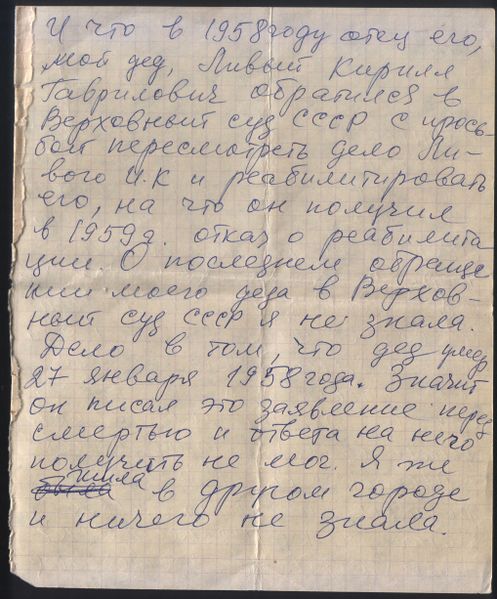 И что в 1958 году отец его,
мой дед, Ливый Кирилл
Гаврилович обратился в
Верховный суд СССР с прось-
бой пересмотреть дело Ли-
вого И.К и реабилитировать
его, на что он получил
в 1959г. отказ о реабилита
ции О последнем обраще
нии моего деда в Верхов-
ный суд СССР я не знала.
Дело в том, что дед умер
27 января 1958 года. Значит
он писал это заявление перед
смертью и ответа на него
получить не мог. Я же
жила в другом городе
и ничего не знала.